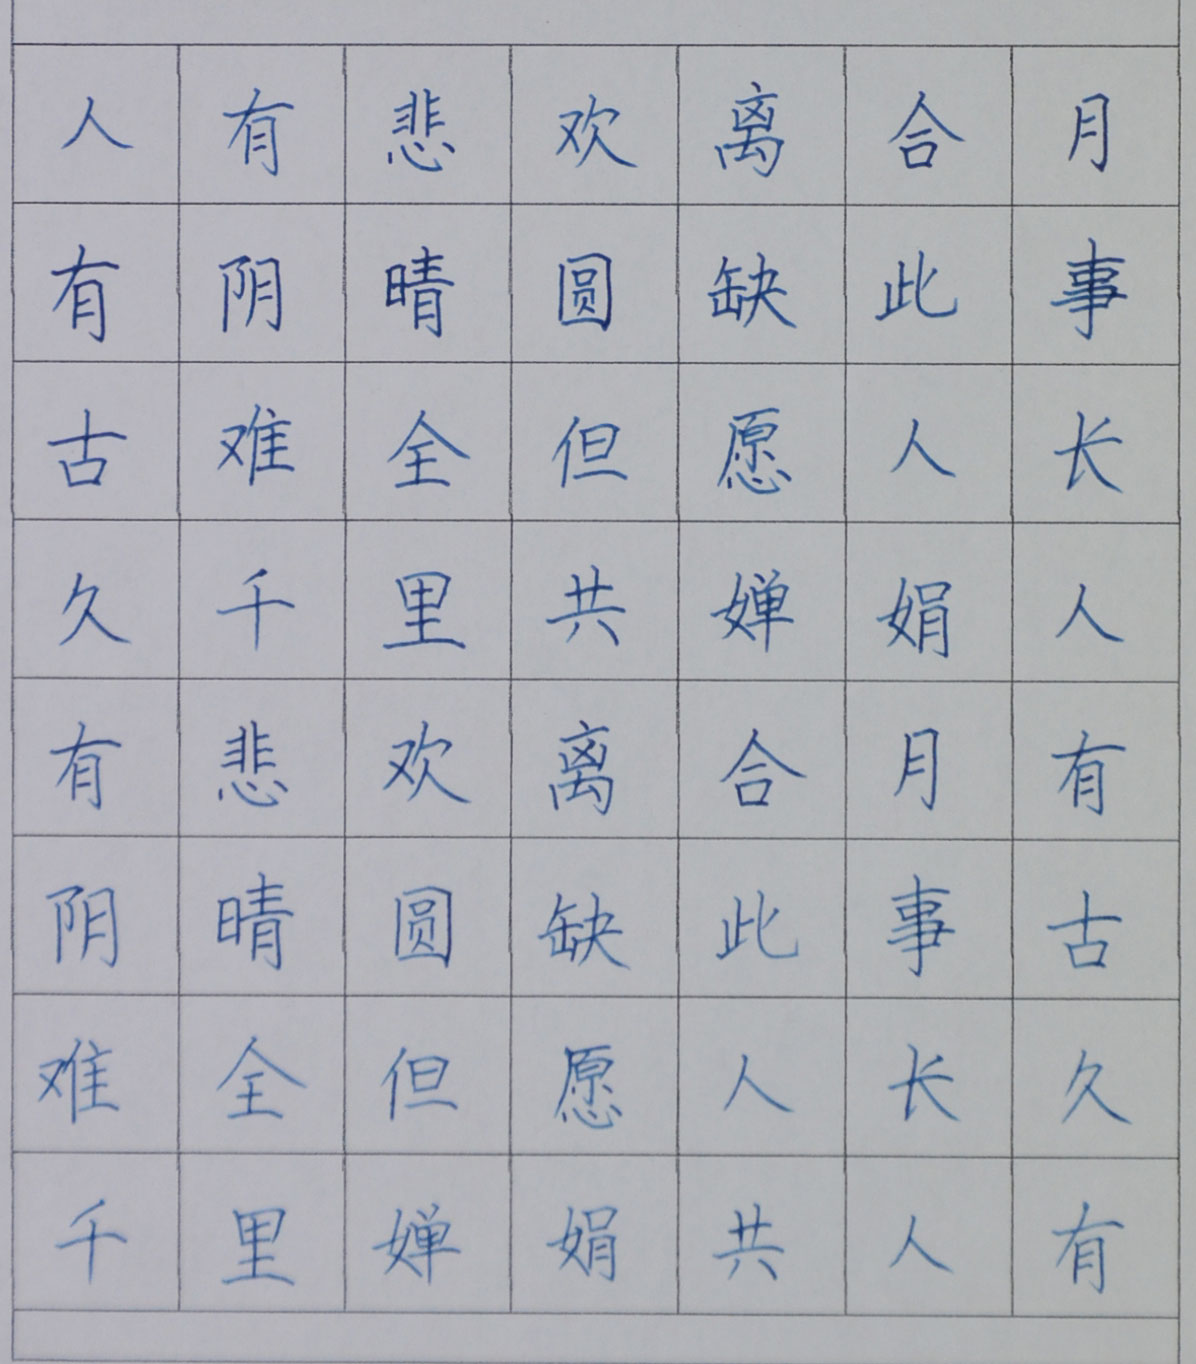 人有悲欢离合月
有阴晴圆缺此事
古难全但愿人长
久千里共婵娟人
有悲欢离合月有
阴晴圆缺此事古
难全但愿人长久
千里婵娟共人有